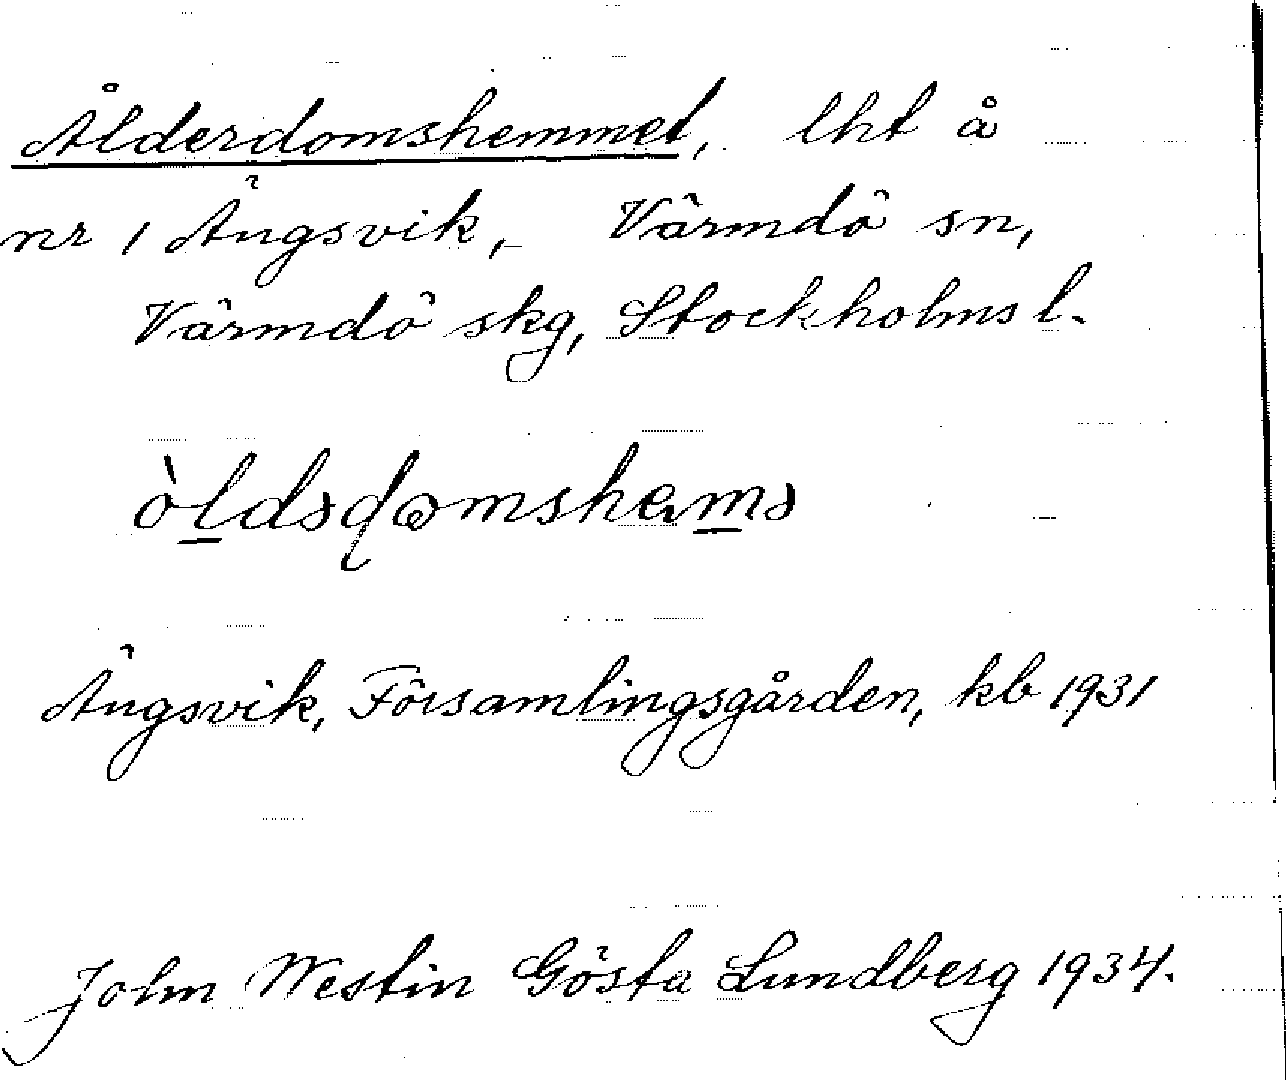 Ålderdomshemmet, lht å
nr 1 Ängsvik, Värmdö sn,
Värmdö skg, Stockholms l.
Ängsvik, Församlingsgården, kb 1931
John Westin Gösta Lundberg 1934.